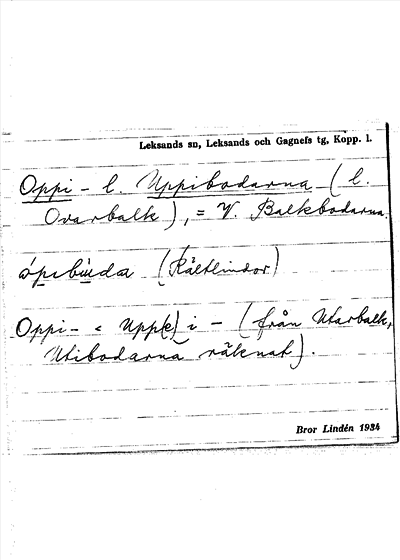 Leksands sn, Leksands och Gagnefs tg, Kopp. l.
Oppi- l. Uppibodarna (l.
Ovarbalk), = V. Balkbodarna.
ópibùda (Kältlindor)
Oppi- < Upp(e) i - (från Utarbalk,
Utibodarna räknat).
Bror Lindén 1934